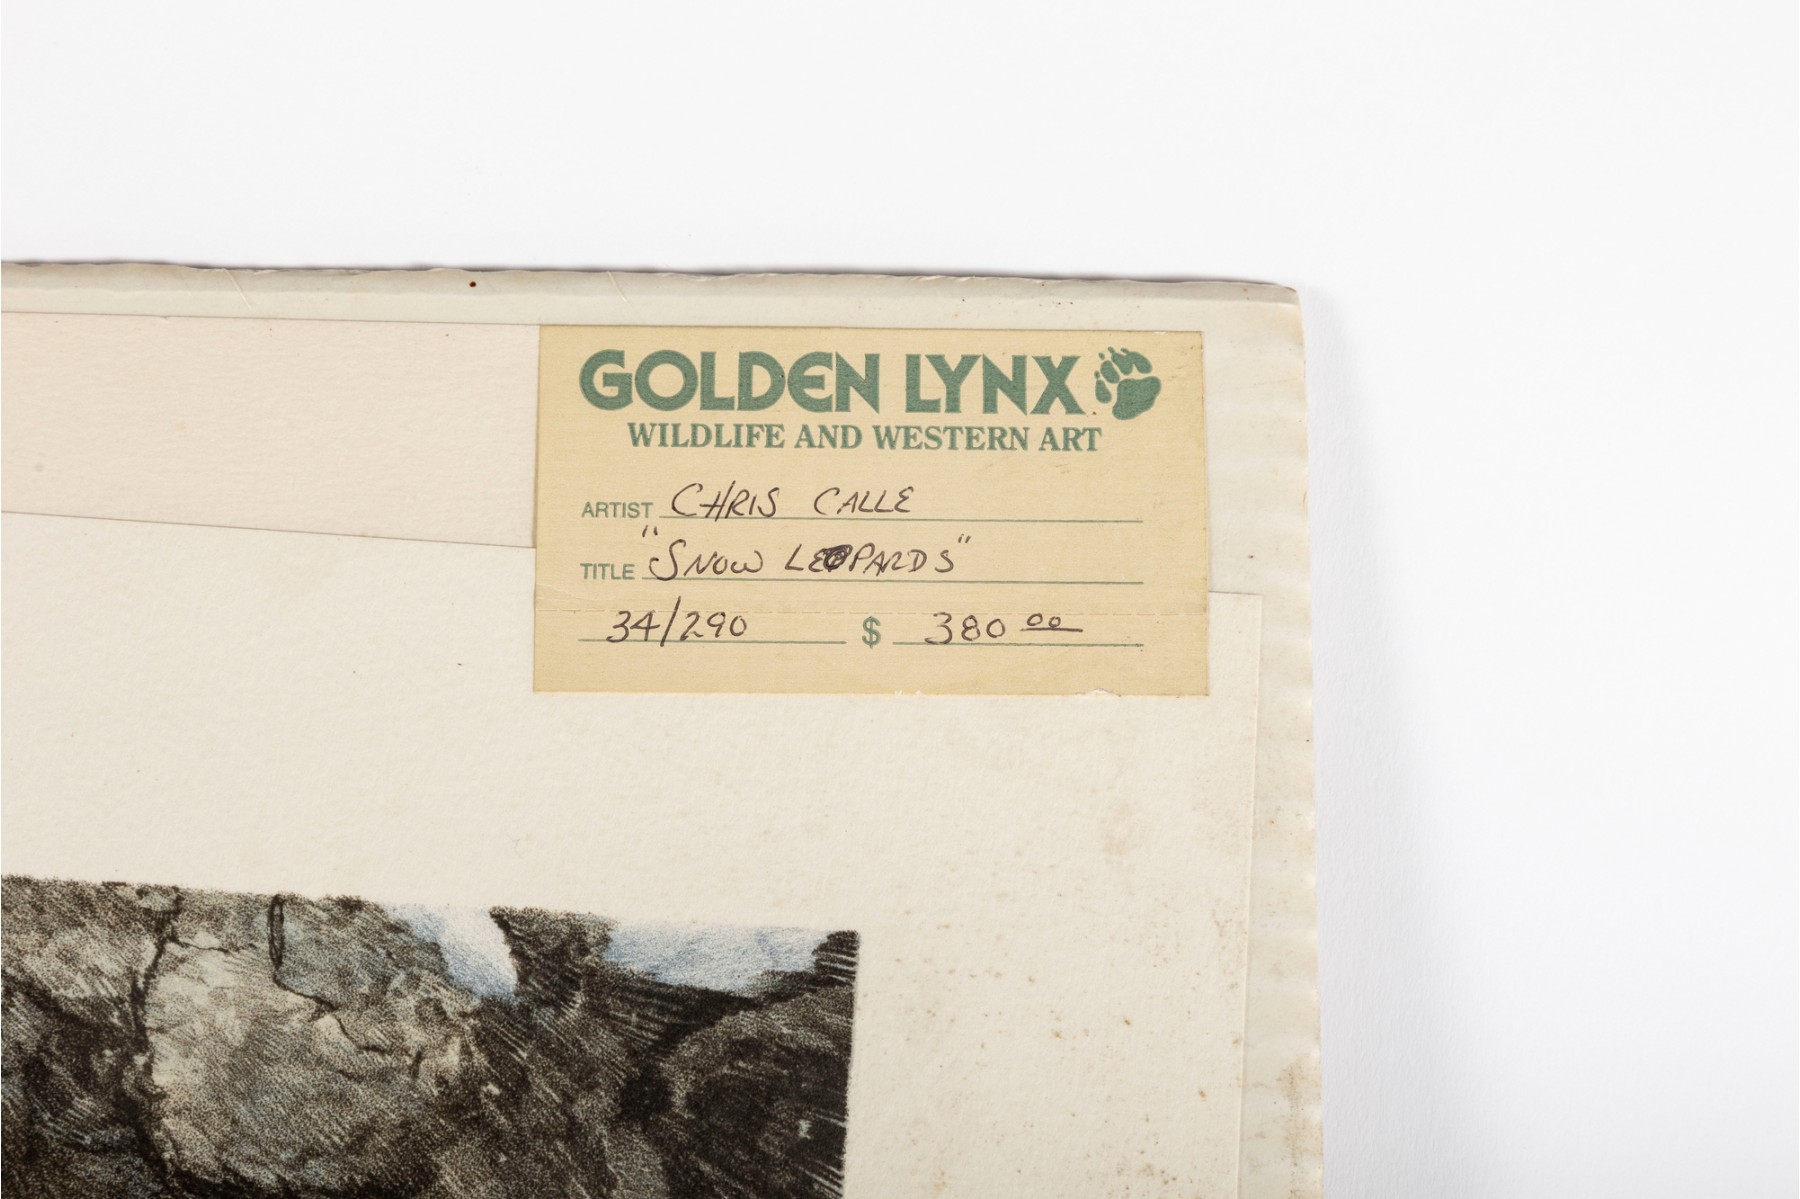 GOLDEN LYNX
WILDLIFE AND WESTERN ART
ARTIST CHRIS CALLE
TITLE "SNOW LEOPARDS"
34/290 $ 380 00